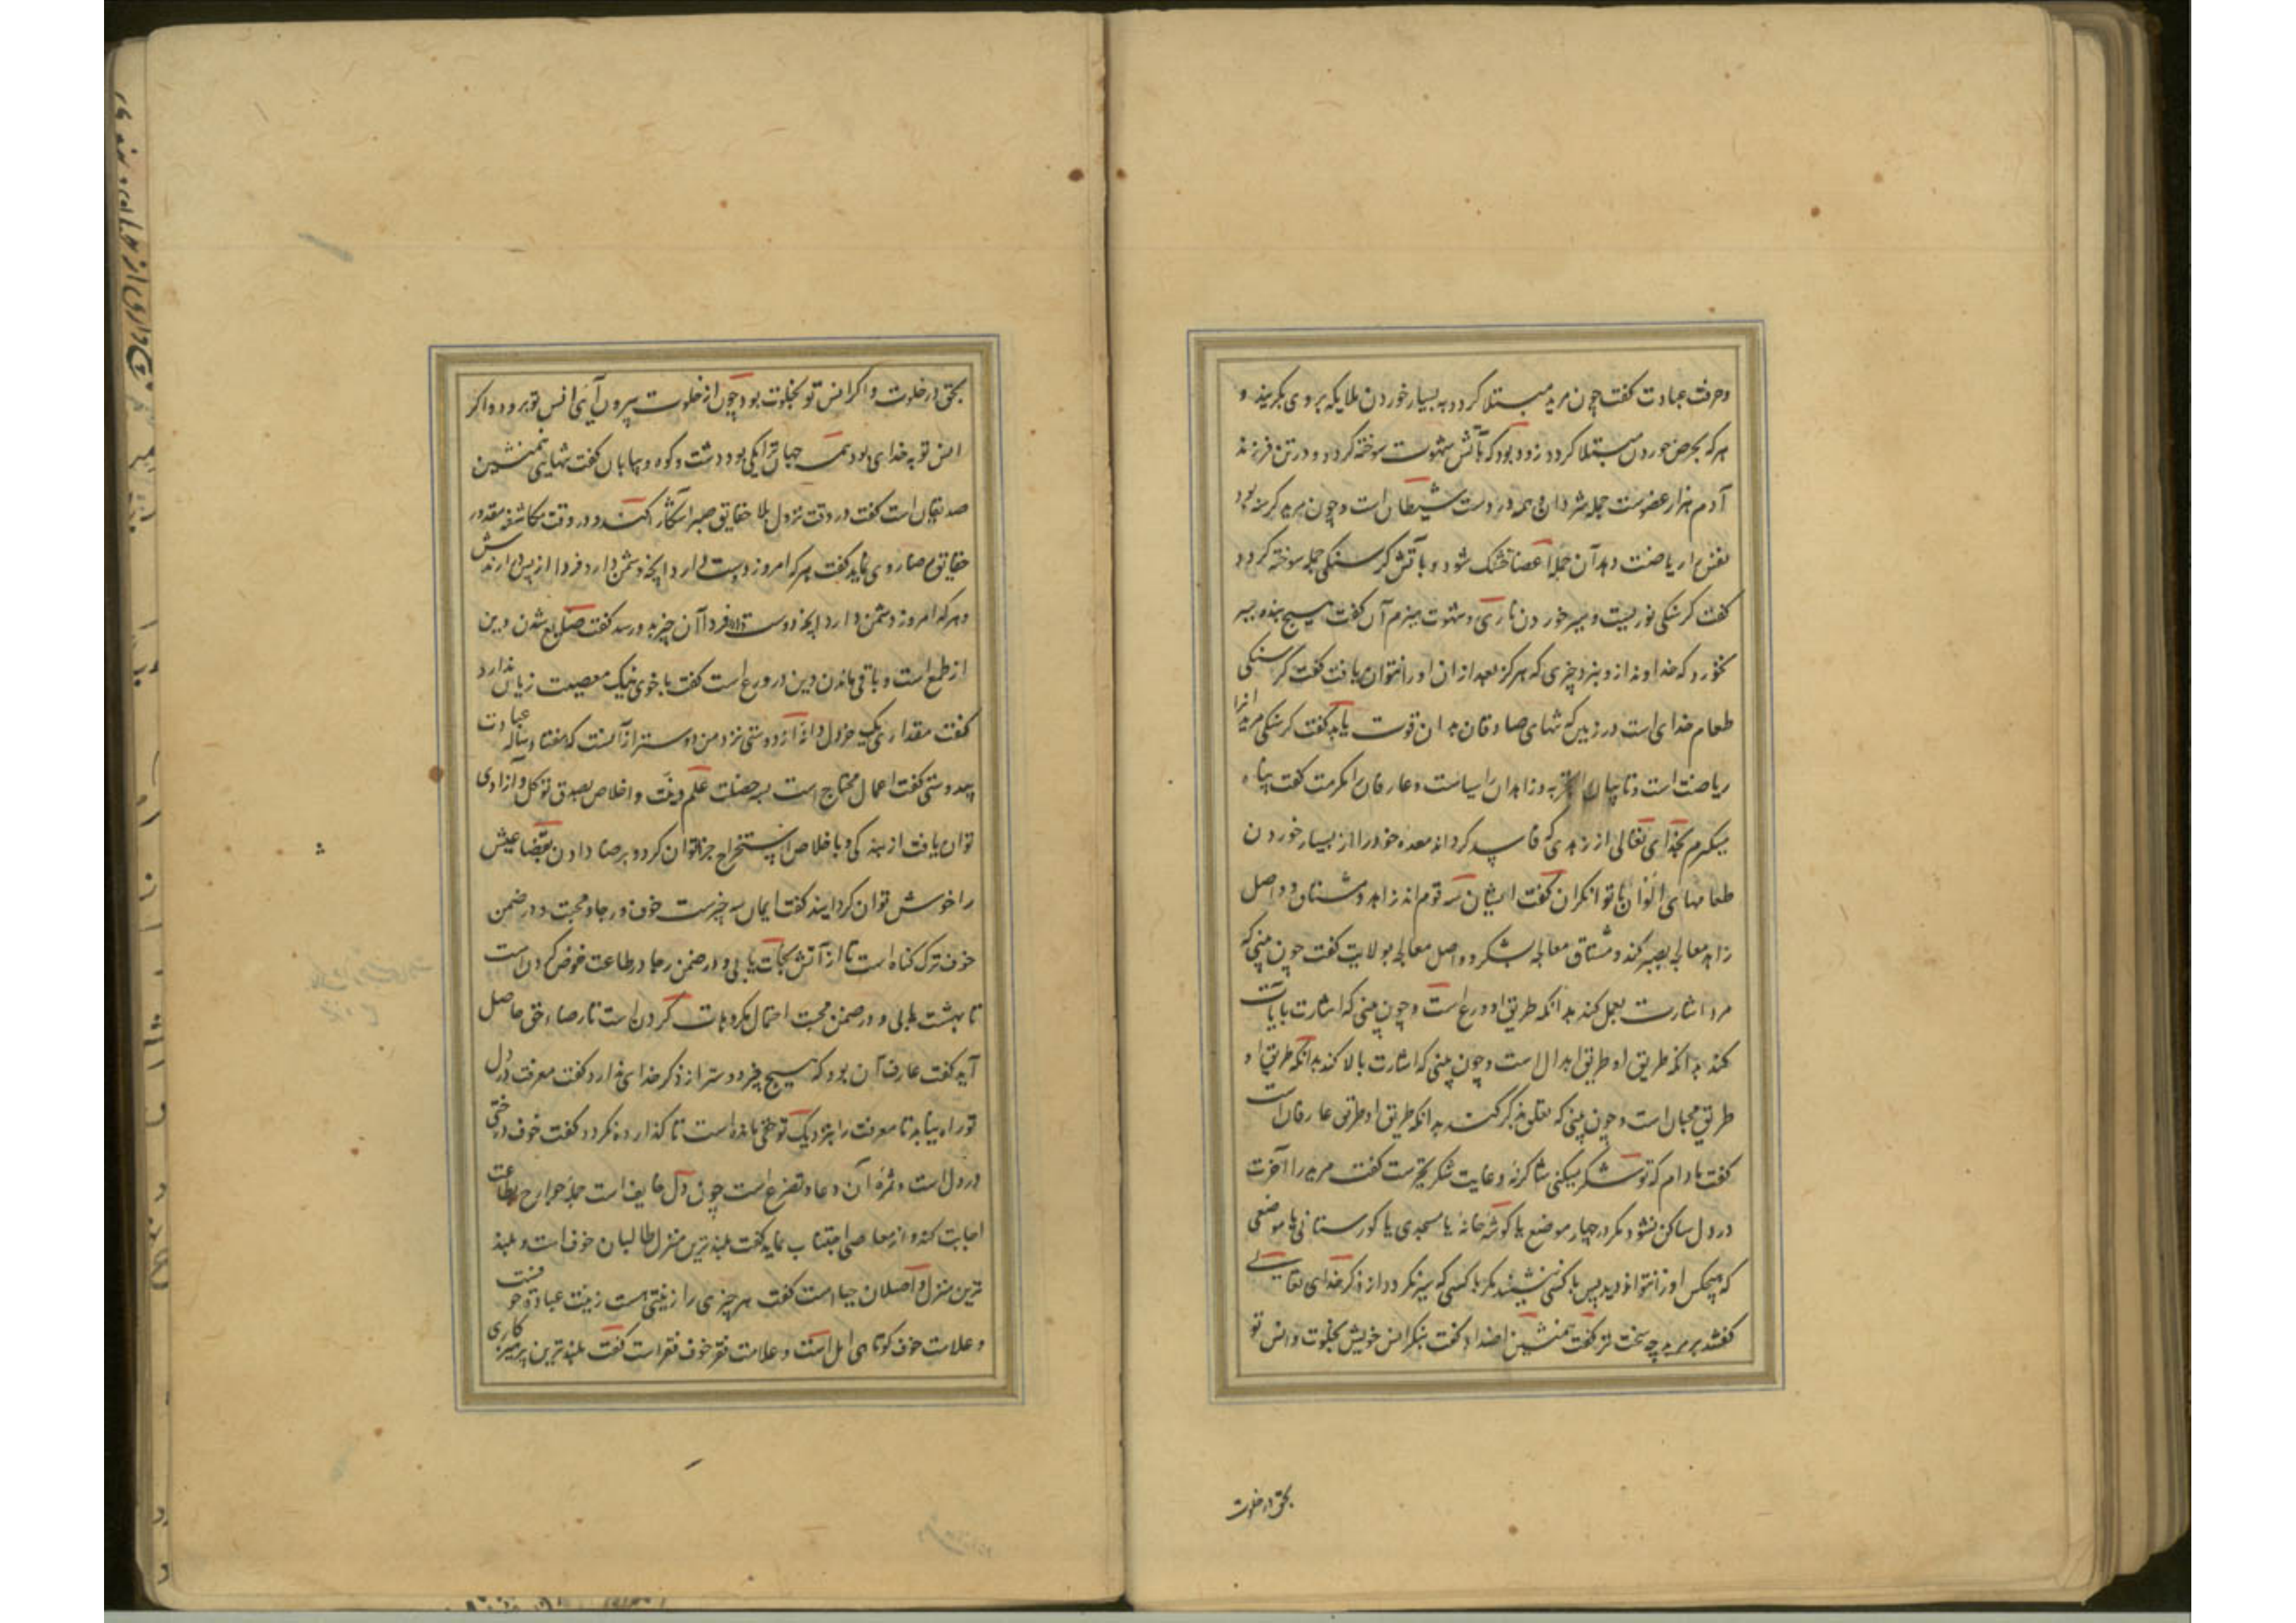 و حرفت عبادت کفت چون مرید مبتلا کردد به بسیار خوردن ملایکه بر وی بکریند و
هر که بحرص خوردن مبتلا کردد زود بود که بآتش شهوت سوخته کردد و در تن فرزند
آدم هزار عضوست جمله شر دان همه در دست شیطان است و چون مرید کرسنه بود
نفس را ریاضت دهد آن جمله اعضا خشک شود و بآتش کرسنکی جمله سوخته کردد
کفت کرسنکی نوریست و سیر خوردن ناری و شهوت هیزم آن کفت هیچ بنده سیر
نخورد که خداوند ازو نبرد چیزی که هرکز بعد از ان او را نتوان یافت کفت کرسنکی
طعام خدای است در زمین که تنهای صادقان بدان قوت یابد کفت کرسنکی مریدانرا
ریاضت است و تایبان را تجربه و زاهدان را سیاست و عارفان را مکرمت کفت پناه
میکیرم بخدای تعالی از زاهدی که فاسد کرداند معده خود را از بسیار خوردن
طعامهای الوان با توانکران کفت ایشان سه قوم اند زاهد و مشتاق و واصل
زاهد معالجه بصبر کند و مشتاق معالجه بشکر و واصل معالجه بولایت کفت چون بینی که
مرد اشارت بعمل کند بدانکه طریق او ورع است و چون بینی که اشارت بآیات
کند بدانکه طریق او طریق ابدال است و چون بینی که اشارت بالا کند بدانکه طریق او
طریق محبان است و چون بینی که تعلق بذکر کند بدانکه طریق او طریق عارفان است
کفت مادام که تو شکر میکنی شاکر نه و غایت شکر تحیرست کفت مرید را آخرت
در دل ساکن نشود مکر در چهار موضع یا کوشه خانه یا مسجدی یا کورستانی یا موضعی
که هیچکس او را نتواند دید پس با کس ننشیند مکر با کسی که سیر نکردد از ذکر خدای تعالی
کفتند بر مرید چه سخت تر کفت همنشین اضداد کفت بنکر انس خویش بخلوت و انس تو
بحق در خلوت
بحق در خلوت و اکر انس تو بخلوت بود چون از خلوت بیرون آیی انس تو برود و اکر
انس تو به خدای بود همه جهان ترا یکی بود دشت و کوه و بیابان کفت تنهایی همنشین
صدیقان است کفت در وقت نزول بلا حقایق صبر آشکارا کنند و در وقت مکاشفه مقدور
حقایق رضا روی نماید کفت هر که امروز دوست دارد آنچه دشمن دارد فردا از پس او آرندش
و هر که امروز دشمن دارد آنچه دوست دارد فردا آن چیز بدو رسد کفت ضایع شدن دین
از طمع است و باقی ماندن دین در ورع است کفت با خوی نیک معصیت زیان ندارد
کفت مقداری یک خردل دانه از دوستی نزد من دوستر از آنست که هفتاد ساله عبادت
بیدوستی کفت اعمال محتاج است بسه خصلت علم و نیت و اخلاص بصدق توکل و آزادی
توان یافت از بندکی و باخلاص استخراج جزا توان کرد و برضا دادن بقضا عیش
را خوش توان کردانید کفت ایمان سه چیزست خوف و رجا و محبت و در ضمن
خوف ترک کناه است تا از آتش نجات یابی و در ضمن رجا در طاعت خوض کردن است
تا بهشت یابی و در ضمن محبت احتمال مکروهات کردن است تا رضاء حق حاصل
آید کفت عارف آن بود که هیچ چیز دوستر از ذکر خدای ندارد کفت معرفت در دل
تو راه نیابد تا معرفت را بنزدیک تو حقی مانده است تا کذارده نکردد کفت خوف درختی
در دل است و ثمره آن دعا و تضرع است چون دل خایف است جمله جوارح بطاعت
اجابت کند و از معاصی اجتناب نماید کفت بلندترین منزل طالبان خوف است و بلند
ترین منزل واصلان حیا است کفت هر چیزی را زینتی هست زینت عبادت خوفست
و علامت خوف کوتاهی امل است و علامت فقر خوف فقر است کفت بلندترین پرهیزکاری